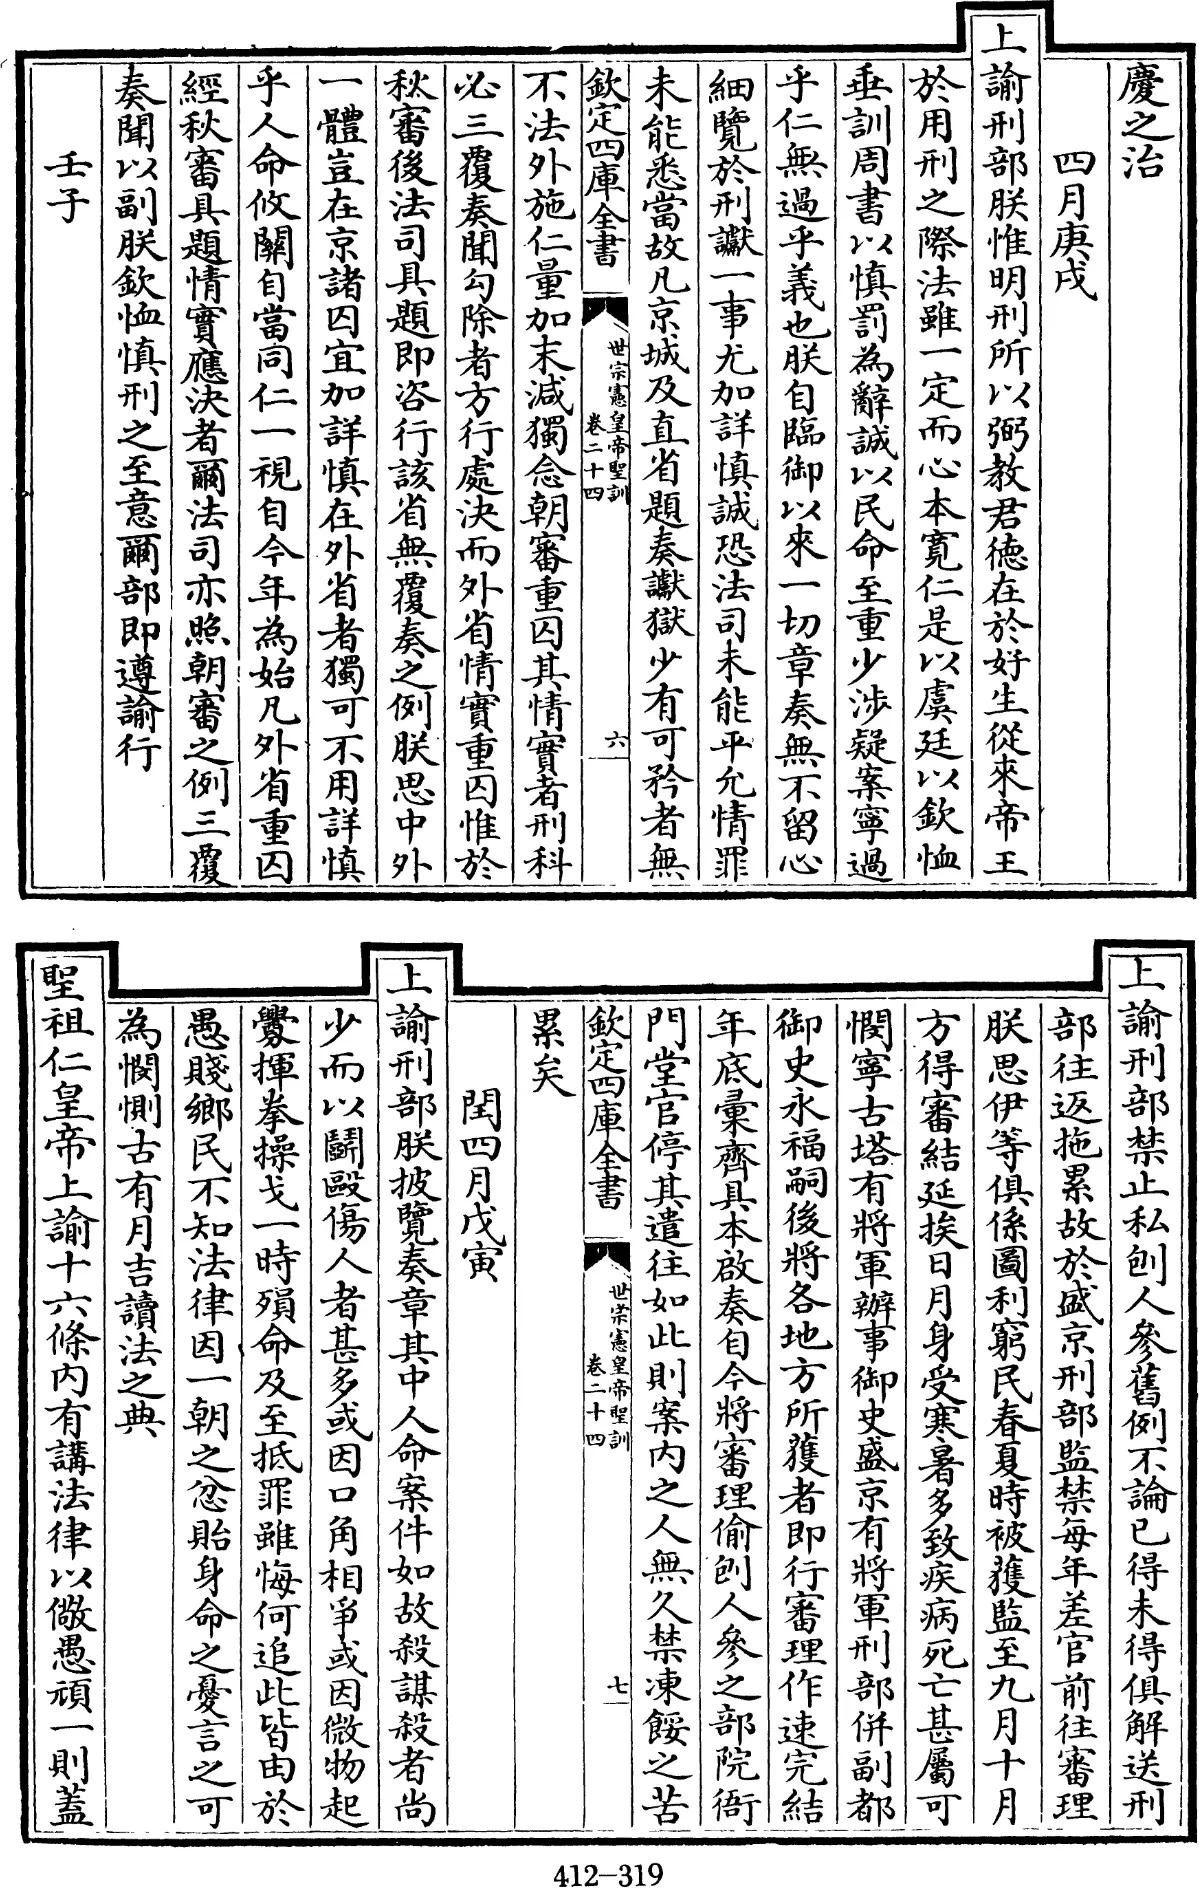 慶之治
四月庚戌
上諭刑部朕惟明刑所以弼教君德在於好生從來帝王
於用刑之際法雖一定而心本寬仁是以虞廷以欽恤
垂訓周書以慎罰為辭誠以民命至重少涉疑案寧過
乎仁無過乎義也朕自臨御以來一切章奏無不留心
細覽於刑讞一事尤加詳慎誠恐法司未能平允情罪
未能悉當故凡京城及直省題奏讞獄少有可矜者無
欽定四庫全書
世宗憲皇帝聖訓
卷二十四
六
不法外施仁量加末減獨念朝審重囚其情實者刑科
必三覆奏聞勾除者方行處決而外省情實重囚惟於
秋審後法司具題即咨行該省無覆奏之例朕思中外
一體豈在京諸囚宜加詳慎在外省者獨可不用詳慎
乎人命攸關自當同仁一視自今年為始凡外省重囚
經秋審具題情實應決者爾法司亦照朝審之例三覆
奏聞以副朕欽恤慎刑之至意爾部即遵諭行
壬子
上諭刑部禁止私刨人參舊例不論已得未得俱解送刑
部往返拖累故於盛京刑部監禁每年差官前往審理
朕思伊等俱係圖利窮民春夏時被獲監至九月十月
方得審結延挨日月身受寒暑多致疾病死亡甚屬可
憫寧古塔有將軍辦事御史盛京有將軍刑部併副都
御史永福嗣後將各地方所獲者即行審理作速完結
年底彙齊具本啟奏自今將審理偷刨人參之部院衙
門堂官停其遣往如此則案內之人無久禁凍餒之苦
欽定四庫全書
世宗憲皇帝聖訓
卷二十四
七
累矣
閏四月戊寅
上諭刑部朕披覽奏章其中人命案件如故殺謀殺者尚
少而以鬭毆傷人者甚多或因口角相爭或因微物起
釁揮拳操戈一時殞命及至抵罪雖悔何追此皆由於
愚賤鄉民不知法律因一朝之忿貽身命之憂言之可
為憫惻古有月吉讀法之典
聖祖仁皇帝上諭十六條內有講法律以儆愚頑一則蓋
412-319